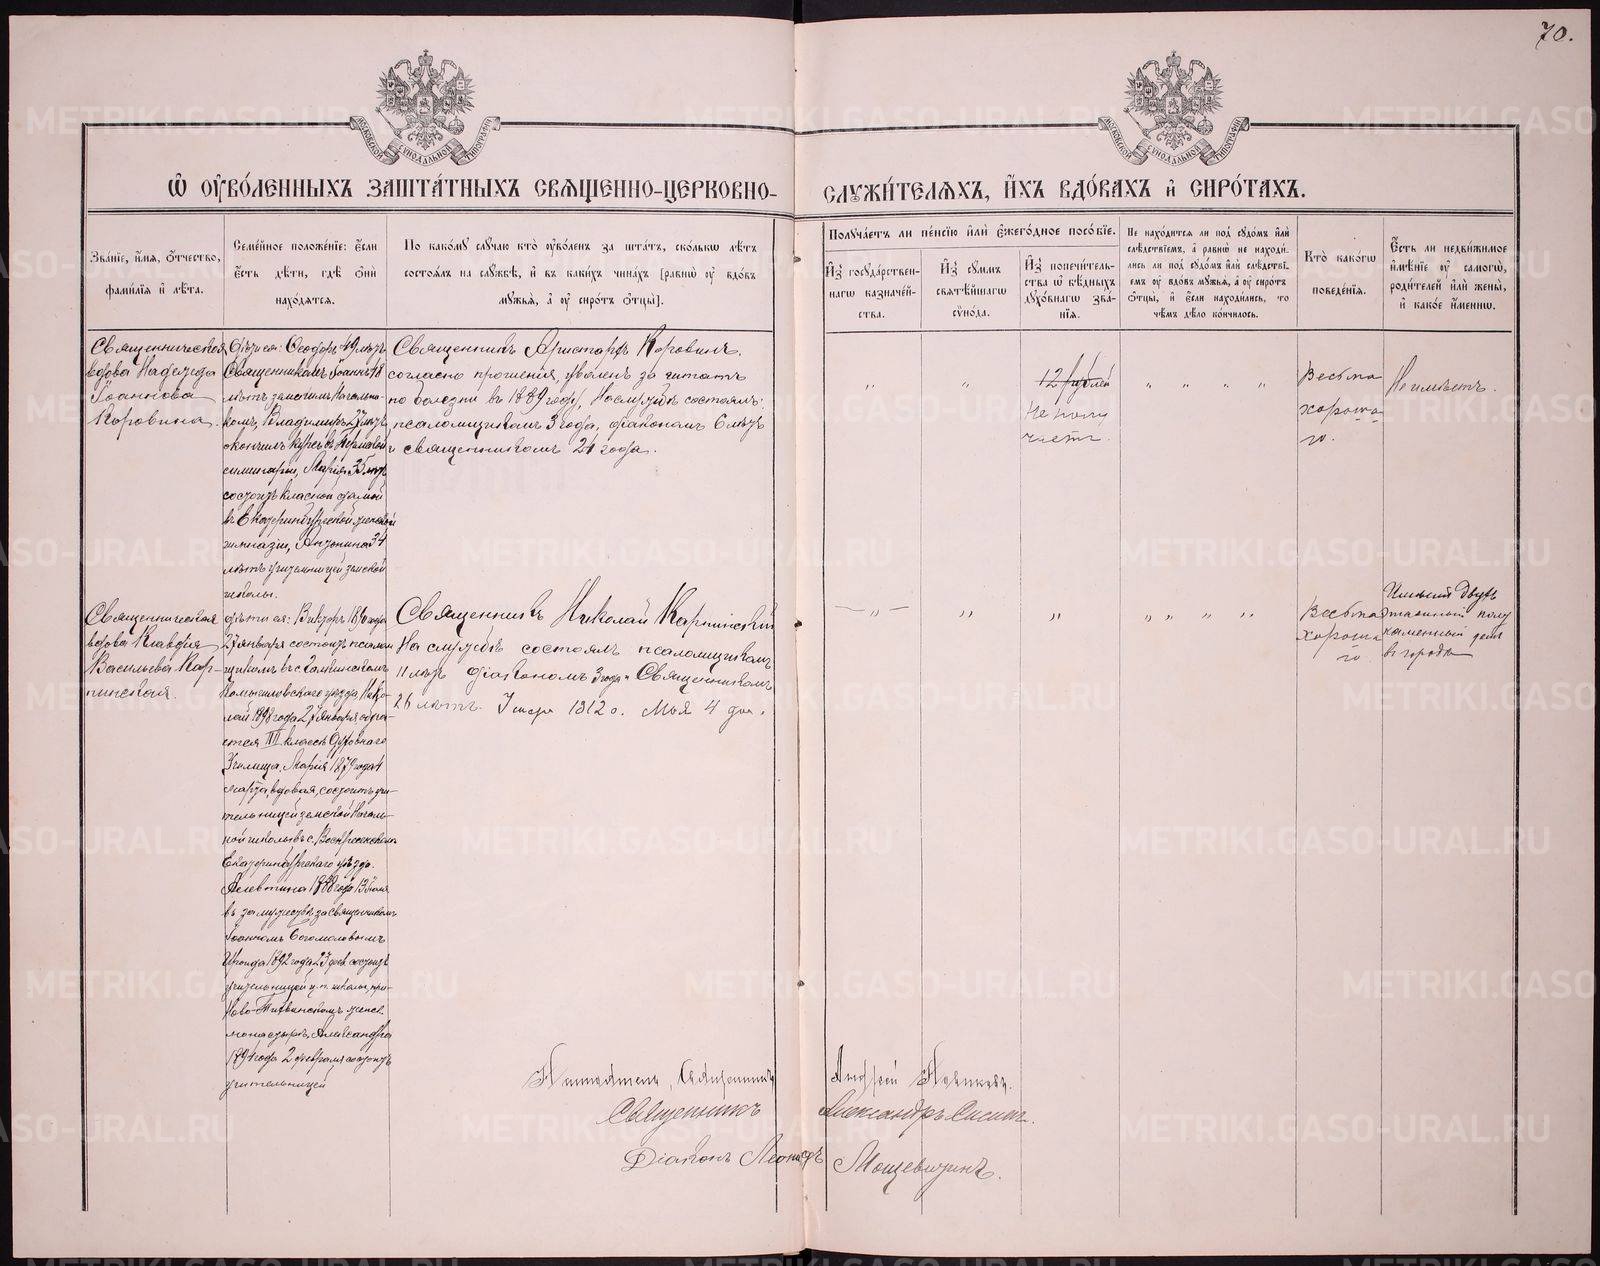 70.
МОСКОВСКОЙ СѴНОДАЛЬНОЙ ТИПОГРАФІИ
МОСКОВСКОЙ СѴНОДАЛЬНОЙ ТИПОГРАФІИ
Ѡ ОУВО́ЛЕННЫХЪ ЗАШТА́ТНЫХЪ СВЯЩЕННО-ЦЕРКОВНО-
СЛУЖИ́ТЕЛѦХЪ, И́ХЪ ВДО́ВАХЪ и҆ СИРО́ТАХЪ.
Зва́нїе, и҆́мѧ, ѻ҆́тчество,
фами́лїѧ и҆ лѣ́та.
Семе́йное положе́нїе: є҆́сли
є҆́сть дѣ́ти, гдѣ̀ ѻ҆нѝ
нахо́дѧтсѧ.
По како́му слу́чаю кто̀ оу҆во́ленъ за шта́тъ, ско́лькѡ лѣ́тъ
состоѧ́лъ на слу́жбѣ, и҆ въ каки́хъ чина́хъ [равнѡ̀ оу҆ вдо́въ
мужьѧ̀, а҆ оу҆ сиро́тъ ѻ҆тцы̀].
Получа́етъ ли пе́нсїю и҆лѝ є҆жего́дное посо́бїе.
И҆з̾ госуда́рствен-
нагѡ казначе́й-
ства.
И҆з̾ сꙋ́ммъ
свѧтѣ́йшагѡ
сѵно́да.
И҆з̾ попечи́тель-
ства ѡ҆ бѣ́дныхъ
духо́внагѡ зва́-
нїѧ.
Не нахо́дитсѧ ли под̾ судо́мъ и҆лѝ
слѣ́дствїемъ, а҆ равнѡ̀ не находи́-
лись ли под̾ судо́мъ и҆лѝ слѣ́дствї-
емъ оу҆ вдо́въ мужьѧ̀, а҆ оу҆ сиро́тъ
ѻ҆тцы̀, и҆ є҆́сли находи́лись, то
чѣ́мъ дѣ́ло ко́нчилось.
Кто̀ како́гѡ
поведе́нїѧ.
Є҆́сть ли недви́жимое
и҆мѣ́нїе оу҆ самогѡ̀,
роди́телей и҆лѝ жены̀,
и҆ како́е и҆́меннѡ.
Священническая
вдова Надежда
Іоаннова
Коровина.
Дѣти ея: Ѳеодоръ 49 лѣтъ
Священникомъ, Іоаннъ 48
лѣтъ земскимъ Начальни-
комъ, Владимиръ 27 лѣтъ
окончилъ курсъ въ Пермской
семинаріи, Марія 35 лѣтъ
состоитъ класной дамой
въ Екатеринбургской женской
гимназіи, Антонина 34
лѣтъ учительницей земской
школы.
Священникъ Аристархъ Коровинъ.
согласно прошенія, уволенъ за штатъ
по болезни въ 1889 году, На службѣ состоялъ:
псаломщикомъ 3 года, діакономъ 6 лѣтъ
и священникомъ 21 года.
„ „ 12 рублей „ „ „ „
Не полу
чаетъ.
Весьма
хороша
го.
Не имѣетъ.
Священническая
вдова Клавдія
Васильева Кар-
пинская.
Дѣти ея: Викторъ 1890 года
27 января состоитъ псалом
щикомъ въ с.
Камышловскаго уѣзда, Нико-
лай 1898 года 27 января обуча-
ется III классѣ Духовнаго
Училища, Марія 1879 года 4
марта, вдовая, состоитъ учи-
тельницей земской Началь-
ной школы въ с. Воскресенскомъ
Екатеринбургскаго уѣзда.
Алевтина 1888 года 13 Іюля
въ замужествѣ за священникомъ
Іоанномъ Богомоловымъ
Ираида 1892 года 23 фев. состоитъ
учительницей ц.п. школы, при
Ново-Тихвинскомъ женск.
монастырѣ, Александра
1894 года 2 февраля состоитъ
учительницей
Священникъ Николай Карпинскій
На службѣ состоялъ псаломщикомъ
11 лѣтъ діакономъ 3 года и Священникомъ
26 лѣтъ. Умеръ 1912 г. Мая 4 дня.
— „ — „ „ „ „ „ „
Весьма
хороша
го
Имѣетъ двухъ
этажный полу
каменный домъ
въ городѣ
Священникъ Андрей
Священникъ Александръ
Діаконъ Леонидъ
METRIKI.GASO-URAL.RU